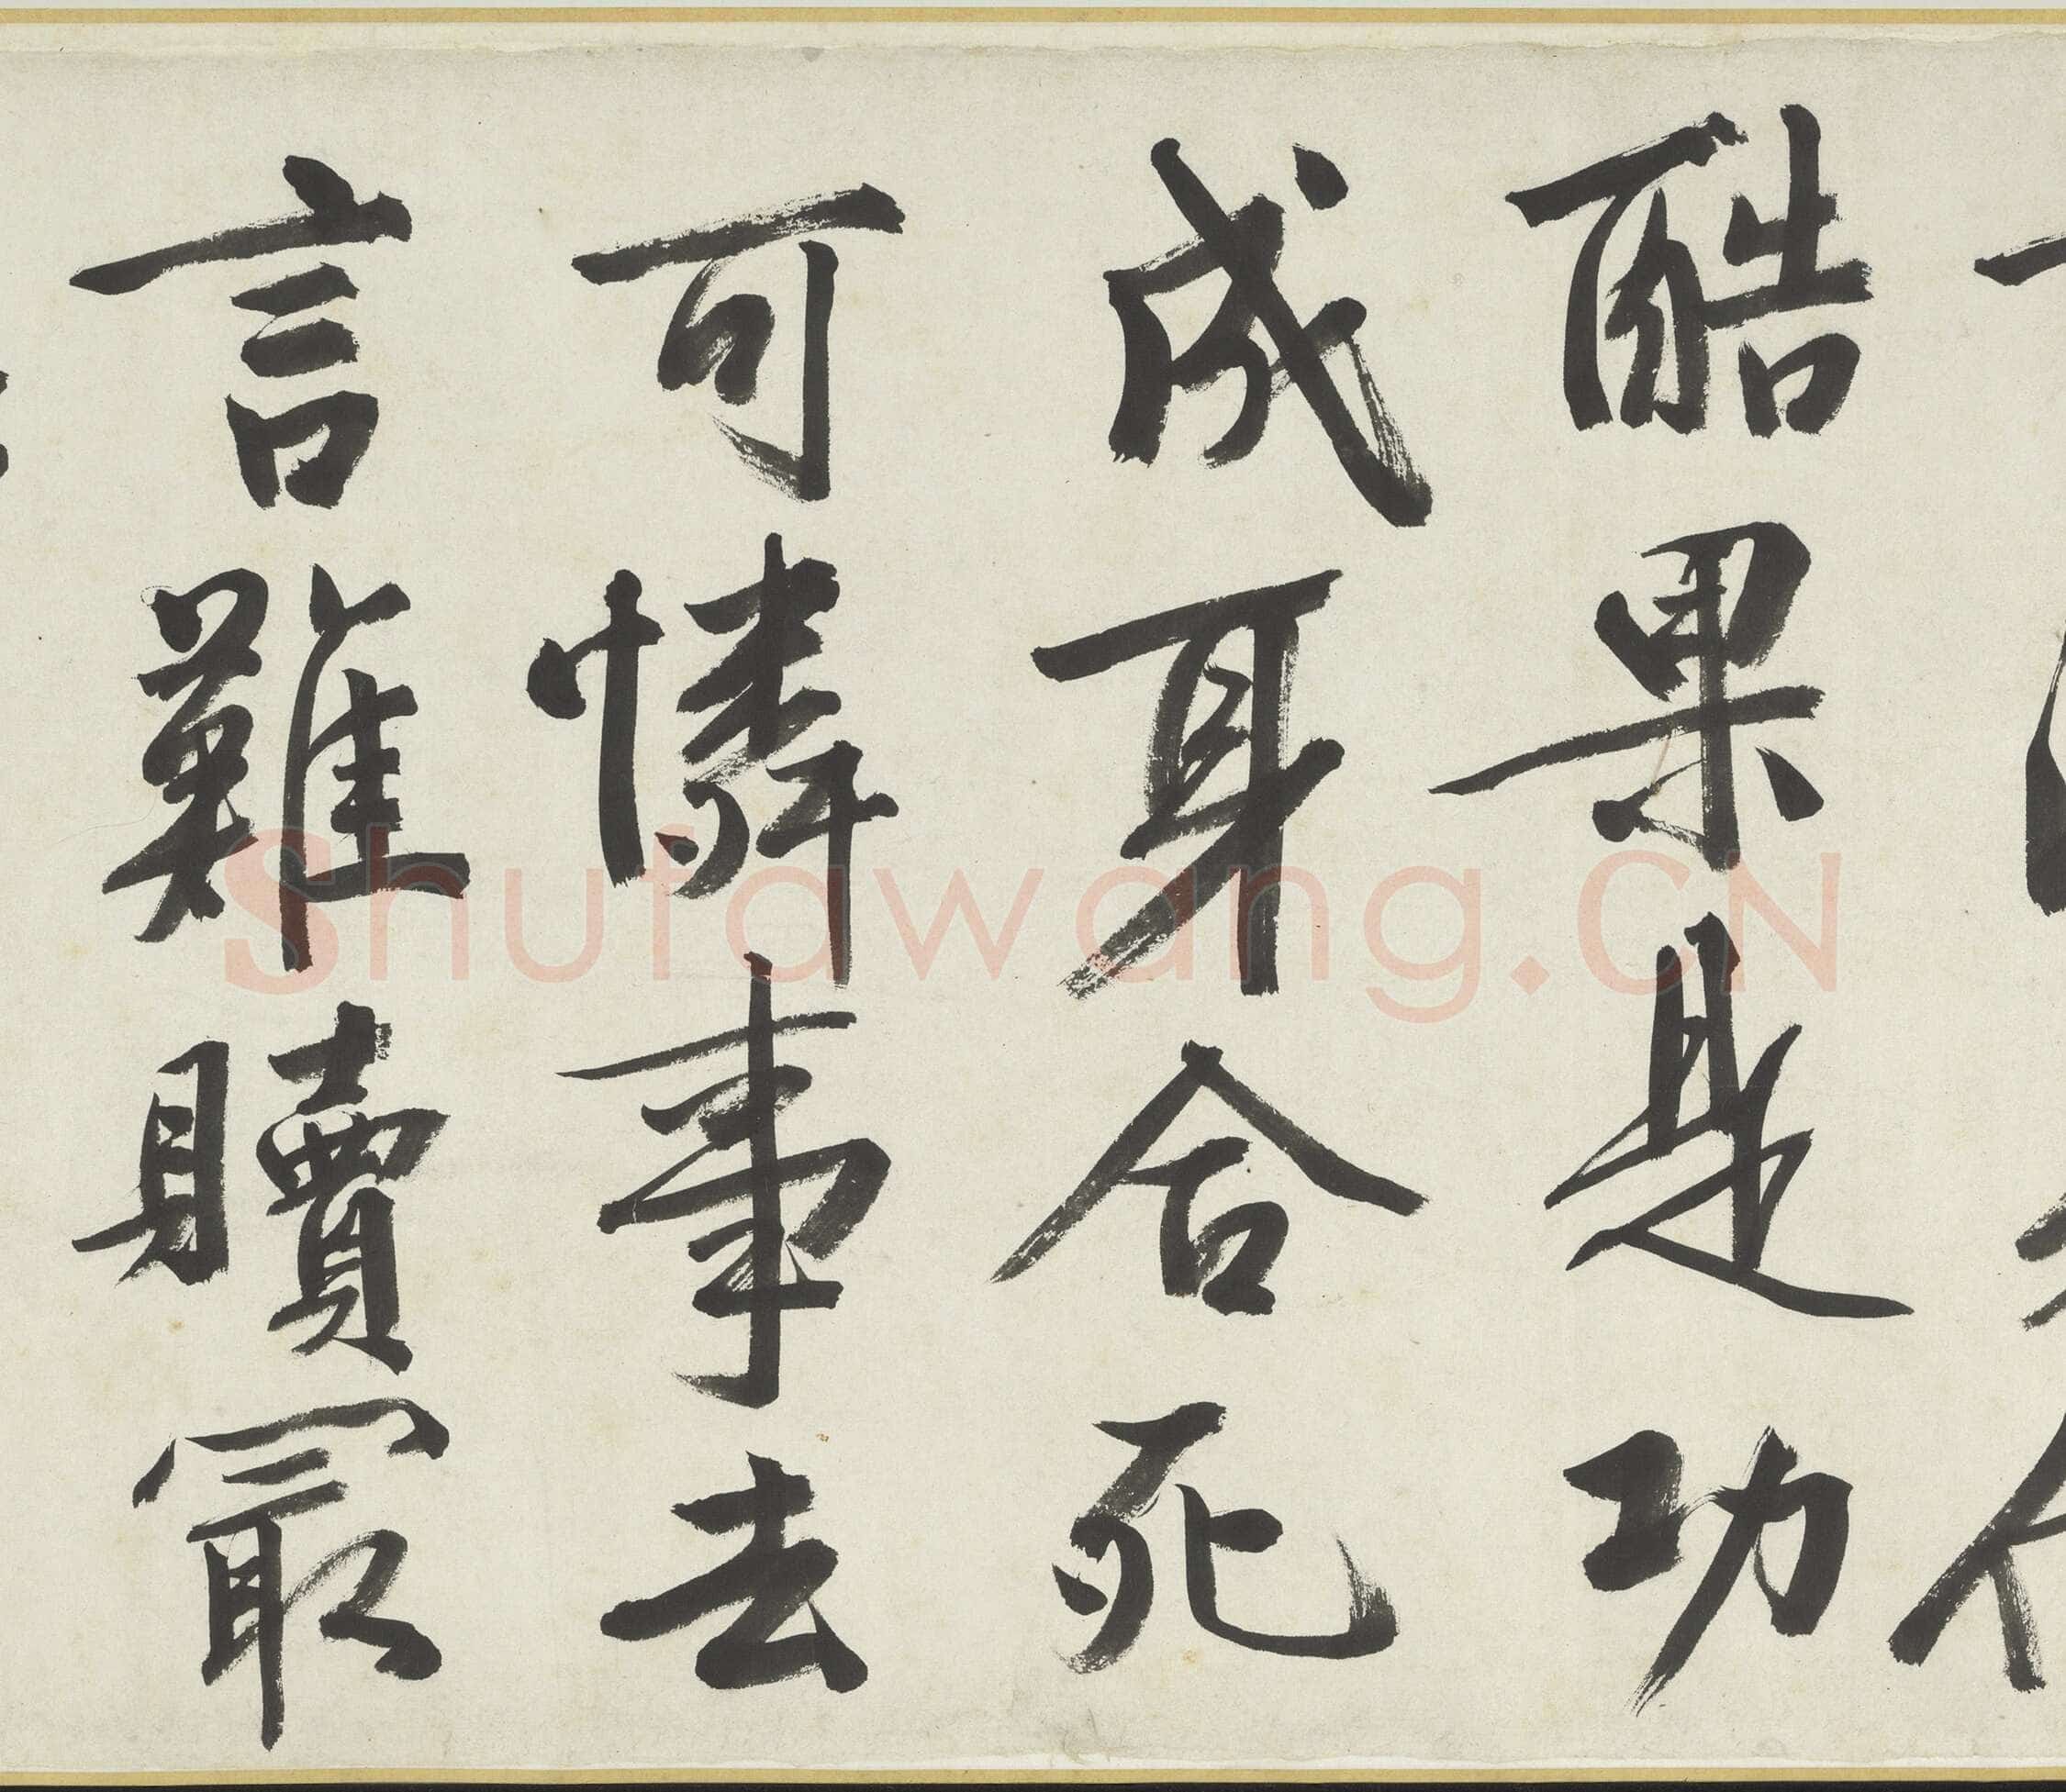 酷果是功
成身合死
可憐事去
言難贖最
Shufawang.CN